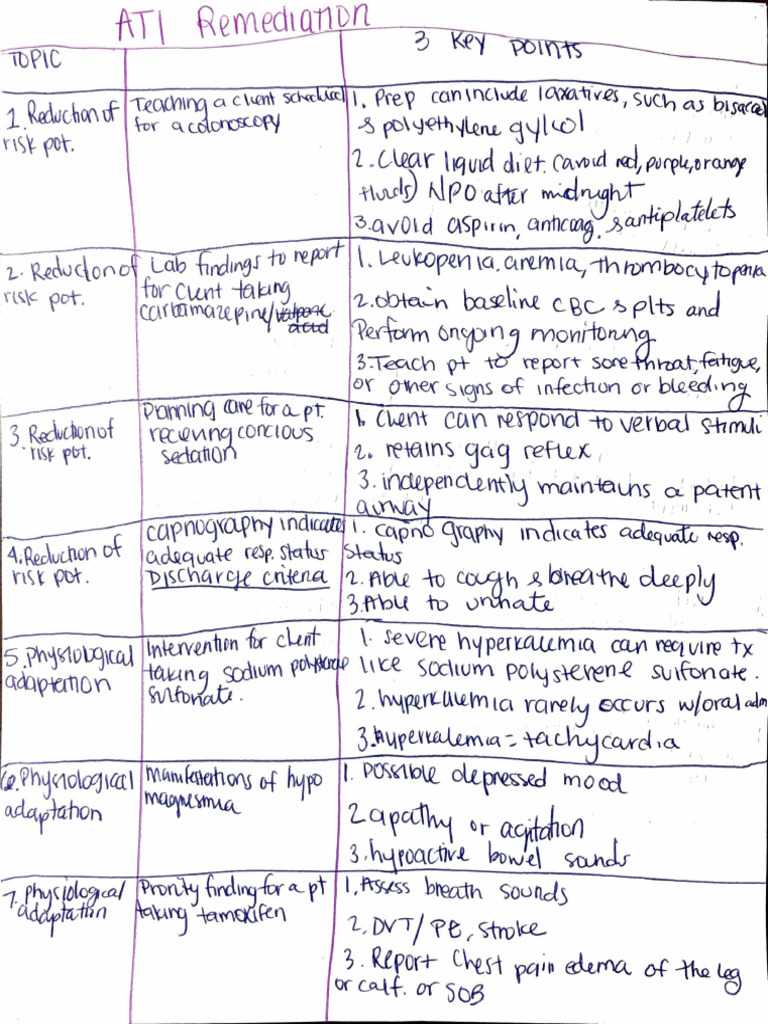 ATI Remediation
TOPIC
3 Key points
1. Reduction of
risk pot.
Teaching a client scheduled
for a colonoscopy
1. Prep can include laxatives, such as bisacod
& polyethylene gylcol
2. Clear liquid diet. (avoid red, purple, orange
fluids) NPO after midnight
3. avoid aspirin, anticoag, & antiplatelets
2. Reduction of
risk pot.
Lab findings to report
for client taking
carbamazepine/valproic
acid
1. Leukopenia, anemia, thrombocytopenia
2. obtain baseline CBC & plts and
Perform ongoing monitoring
3. Teach pt to report sore throat, fatigue,
or other signs of infection or bleeding
3. Reduction of
risk pot.
Planning care for a pt.
recieving concious
sedation
1. Client can respond to verbal stimuli
2. retains gag reflex
3. independently maintains a patent
airway
4. Reduction of
risk pot.
capnography indicates
adequate resp. status
Discharge criteria
1. capnography indicates adequate resp.
status
2. Able to cough & breathe deeply
3. Able to
5. Physiological
adaptation
Intervention for client
taking sodium polystyrene
sulfonate.
1. severe hyperkalemia can require tx
like sodium polysterene sulfonate.
2. hyperkalemia rarely occurs w/oral adm
3. Hyperkalemia = tachycardia
6. Physiological
adaptation
Manifestations of hypo
magnesmia
1. possible depressed mood
2 apathy or agitation
3. hypoactive bowel sounds
7. Physiological
adaptation
Priority finding for a pt
taking tamoxifen
1. Assess breath sounds
2. DVT/PE, stroke
3. Report Chest pain edema of the leg
or calf. or SOB